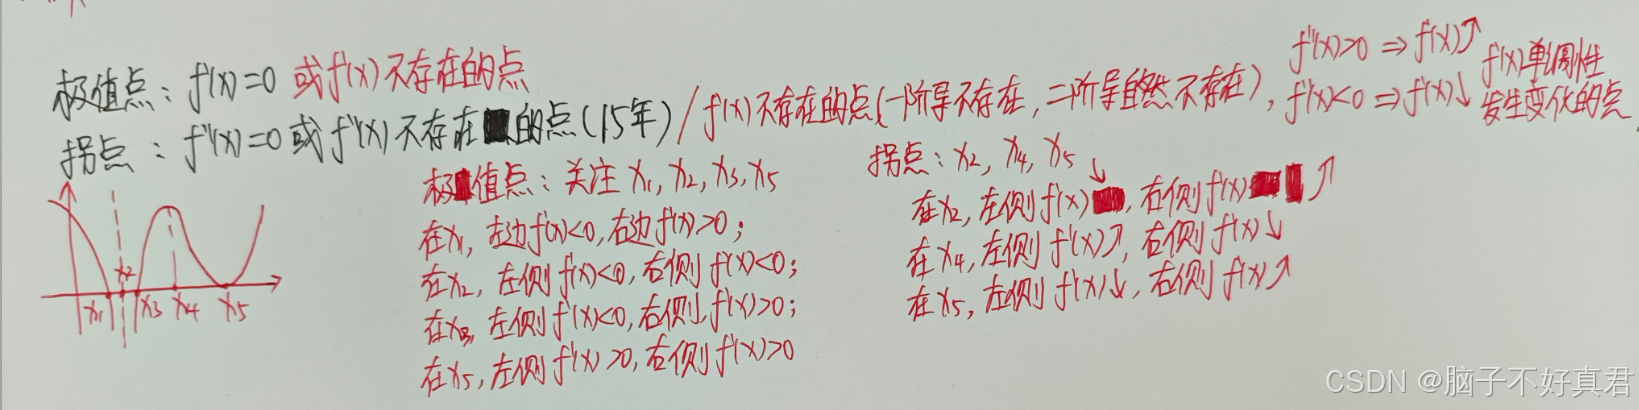 极值点：f'(x)=0 或f'(x)不存在的点
拐点：f''(x)=0或f''(x)不存在的点(15年)/f'(x)不存在的点(一阶导不存在，二阶导自然不存在)，
f''(x)>0 ⇒ f'(x)↗
f''(x)<0 ⇒ f'(x)↓
f'(x)单调性
发生变化的点
x1 x2 x3 x4 x5
极值点：关注 x1, x2, x3, x5
在x1, 左边f'(x)<0, 右边f'(x)>0；
在x2, 左侧f'(x)<0, 右侧f'(x)<0；
在x3, 左侧f'(x)<0, 右侧f'(x)>0；
在x5, 左侧f'(x)>0, 右侧f'(x)>0
拐点：x2, x4, x5
在x2, 左侧f'(x)↓, 右侧f'(x)↗
在x4, 左侧f'(x)↗, 右侧f'(x)↓
在x5, 左侧f'(x)↓, 右侧f'(x)↗
CSDN @脑子不好真君